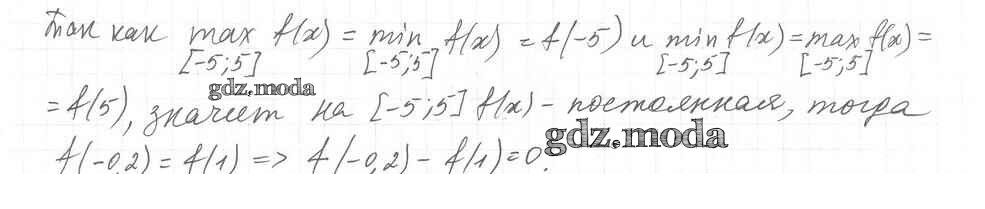 Так как max f(x) = min f(x) = f(-5) и min f(x) = max f(x) =
[-5;5] [-5;5] [-5;5] [-5;5]
gdz.moda
= f(5), значит на [-5;5] f(x) - постоянная, тогда
gdz.moda
f(-0,2) = f(1) => f(-0,2) - f(1) = 0.